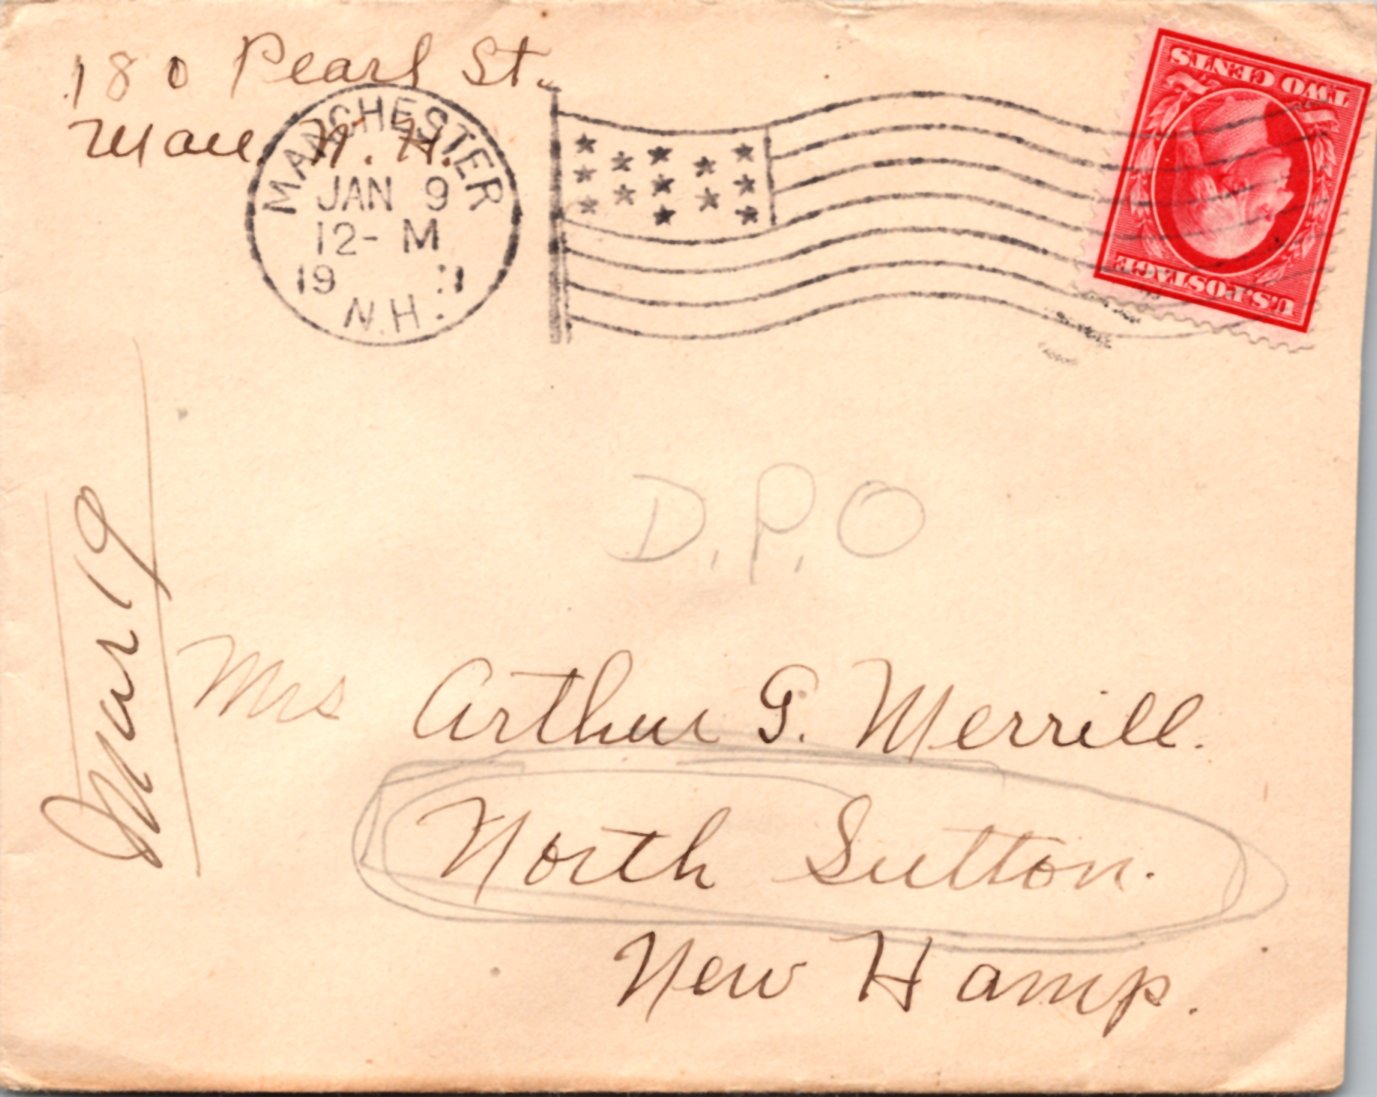 180 Pearl St.
Man. N. H.
MANCHESTER
JAN 9
12- M
19 11
N.H.
TWO CENTS
U.S. POSTAGE
D.P.O
Mar 19
Mrs Arthur G. Merrill.
North Sutton.
New Hamp.